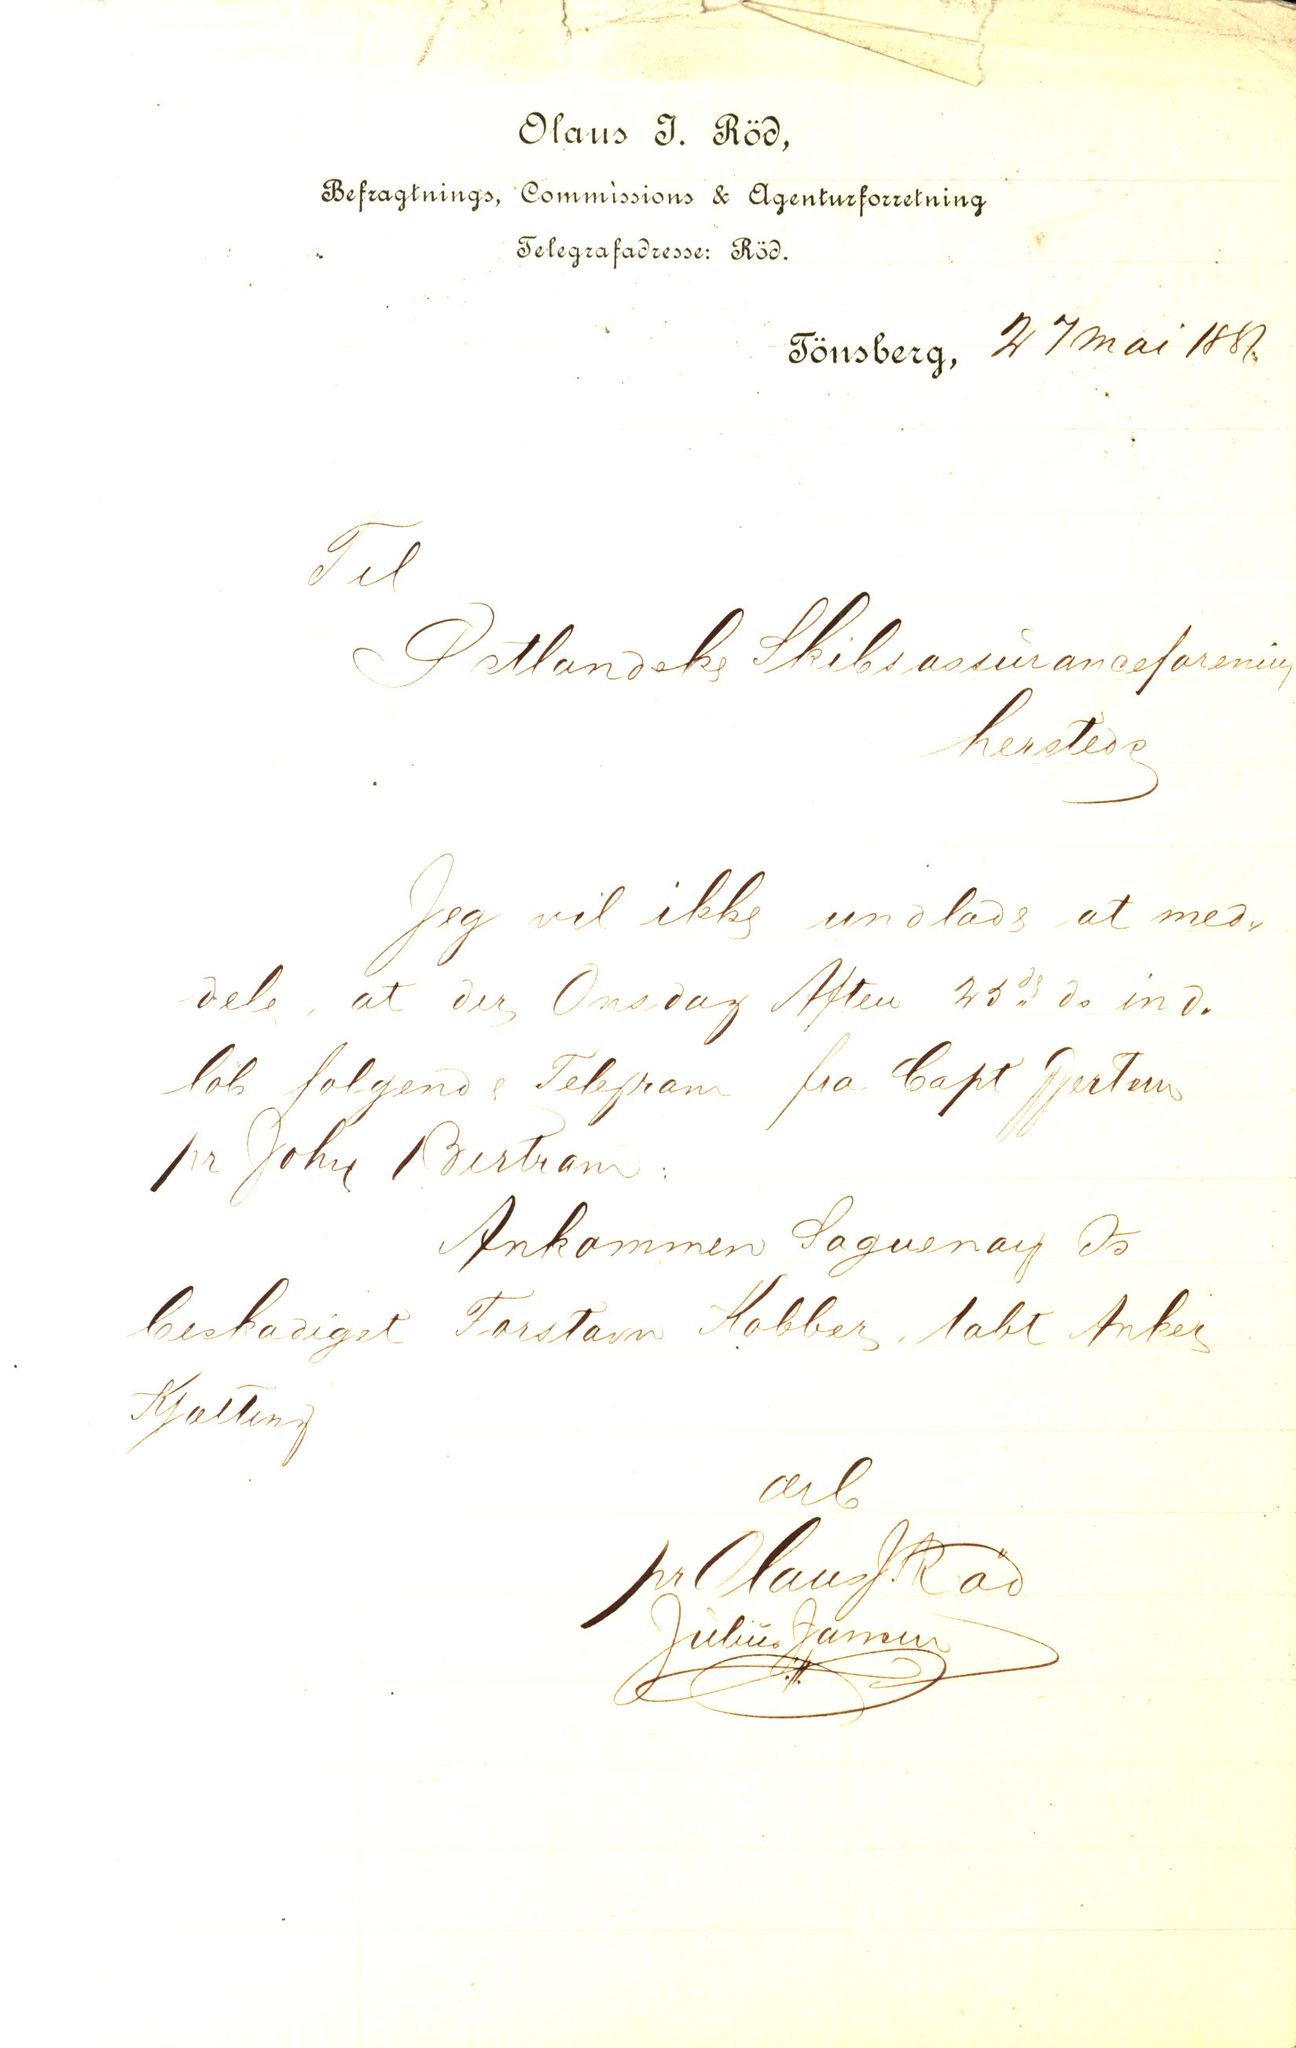 Olaus J. Röd,
Befragtnings, Commissions & Agenturforretning
Telegrafadresse: Röd.
Tönsberg, 27 Mai 1887.
Til
Østlandske Skibsassuranceforening
hersteds
Jeg vil ikke undlade at med-
dele, at der Onsdag Aften 25de ds ind-
löb folgende Telegram fra Capt Gjertsen
pr John Bertram:
Ankommen Saguenay Is
beskadiget Forstavn Kobber, tabt Anker
Kjætting
ærb
pr Olaus J. Röd
Julius Jansen